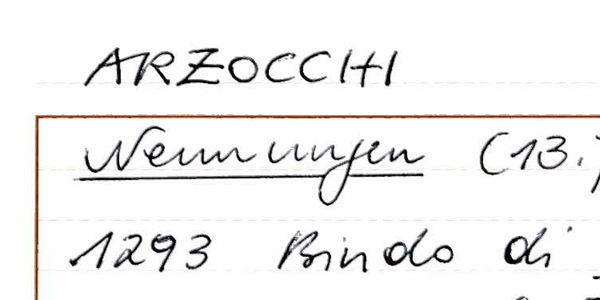 ARZOCCHI
Nennungen (13.)
1293 Bindo di